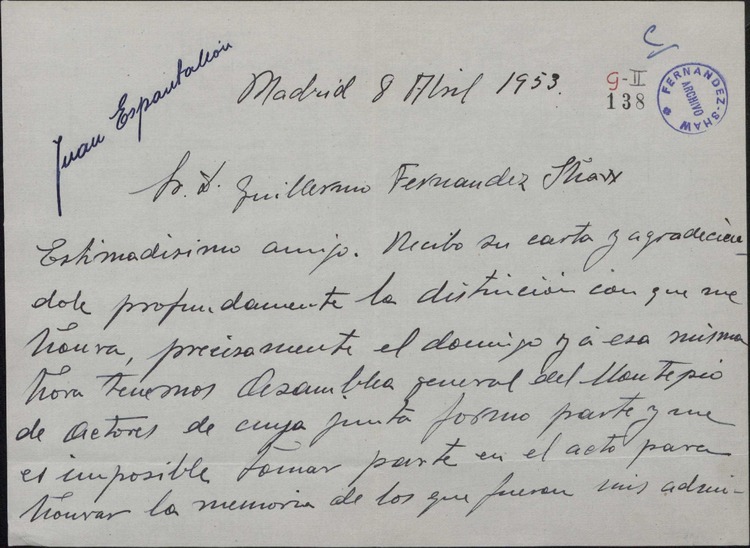 Juan Espantaleón
Madrid 8 Abril 1953.
G-II
138
FERNANDEZ-SHAW
ARCHIVO
Sr. D. Guillermo Fernandez Shaw
Estimadisimo amigo. Recibo su carta y agradecien-
dole profundamente la distinción con que me
honra, precisamente el domingo y á esa misma
hora tenemos Asamblea general del Montepio
de Actores de cuya junta formo parte y me
es imposible tomar parte en el acto para
honrar la memoria de los que fueron mis admi-